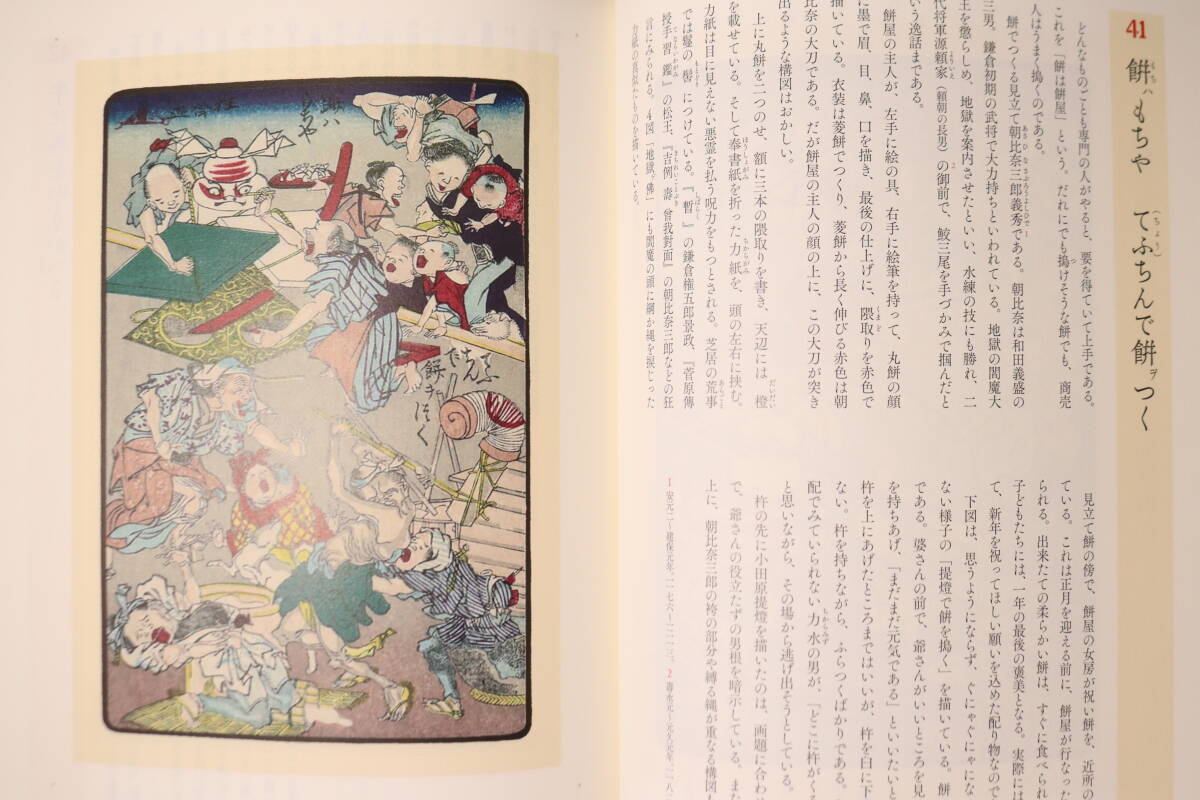 41 餅ハもちや てふちんで餅ヲつく
どんなものごとも専門の人がやると、要を得ていて上手である。
これを「餅は餅屋」という。だれにでも搗けそうな餅でも、商売
人はうまく搗くのである。
餅でつくる見立て朝比奈三郎義秀である。朝比奈は和田義盛の
三男。鎌倉初期の武将で大力持ちといわれている。地獄の閻魔大
王を懲らしめ、地獄を案内させたといい、水練の技にも勝れ、二
代将軍源頼家(頼朝の長男)の御前で、鮫三尾を手づかみで掴んだと
いう逸話まである。
餅屋の主人が、左手に絵の具、右手に絵筆を持って、丸餅の顔
に墨で眉、目、鼻、口を描き、最後の仕上げに、隈取りを赤色で
描いている。衣装は菱餅でつくり、菱餅から長く伸びる赤色は朝
比奈の大刀である。だが餅屋の主人の顔の上に、この大刀が突き
出るような構図はおかしい。
上に丸餅を二つのせ、額に三本の隈取りを書き、天辺には橙
を載せている。そして奉書紙を折った力紙を、頭の左右に挟む。
力紙は目に見えない悪霊を払う呪力をもつとされる。芝居の荒事
では鬘の髻につけている。『暫』の鎌倉権五郎景政、『菅原傳
授手習鑑』の松王、『吉例壽曾我對面』の朝比奈三郎などとの狂
言にみられる。4図「地獄佛」にも閻魔の頭に綱か縄を捩じった
力紙の真似たものを描いている。
見立て餅の傍で、餅屋の女房が祝い餅を、近所の
ている。これは正月を迎える前に、餅屋が行なった
られる。出来たての柔らかい餅は、すぐに食べられ
子どもたちには、一年の最後の褒美となる。実際には
て、新年を祝ってほしい願いを込めた配り物なので
下図は、思うようにならず、ぐにゃぐにゃにな
ない様子の「提燈で餅を搗く」を描いている。餅
である。婆さんの前で、爺さんがいいところを見
を持ちあげ、「まだまだ元気である」といいたいと
杵を上にあげたところまではいいが、杵を臼に下
ない。杵を持ちながら、ふらつくばかりである。
配でみていられない力水の男が、「どこに杵がくる
と思いながら、その場から逃げ出そうとしている。
杵の先に小田原提燈を描いたのは、画題に合わせ
で、爺さんの役立たずの男根を暗示している。また
上に、朝比奈三郎の袴の部分や縛る縄が重なる構図も